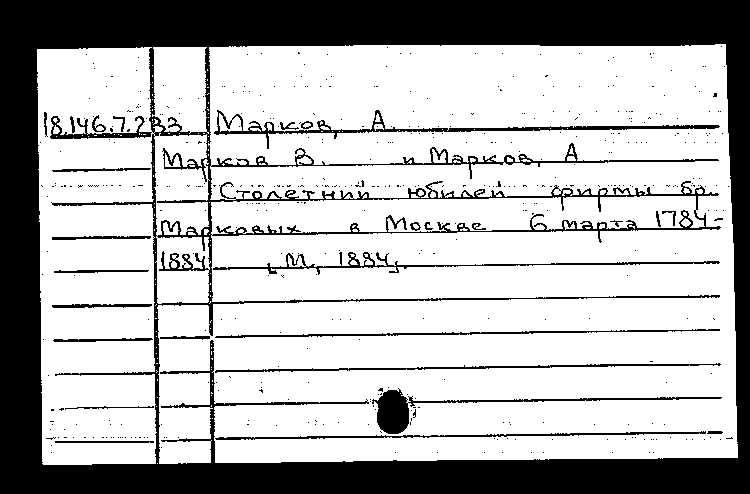 18.146.7.233 Марков, А.
Марков В. и Марков, А
Столетний юбилей фирмы бр.
Марковых в Москве 6 марта 1784-
1884 [М., 1884].